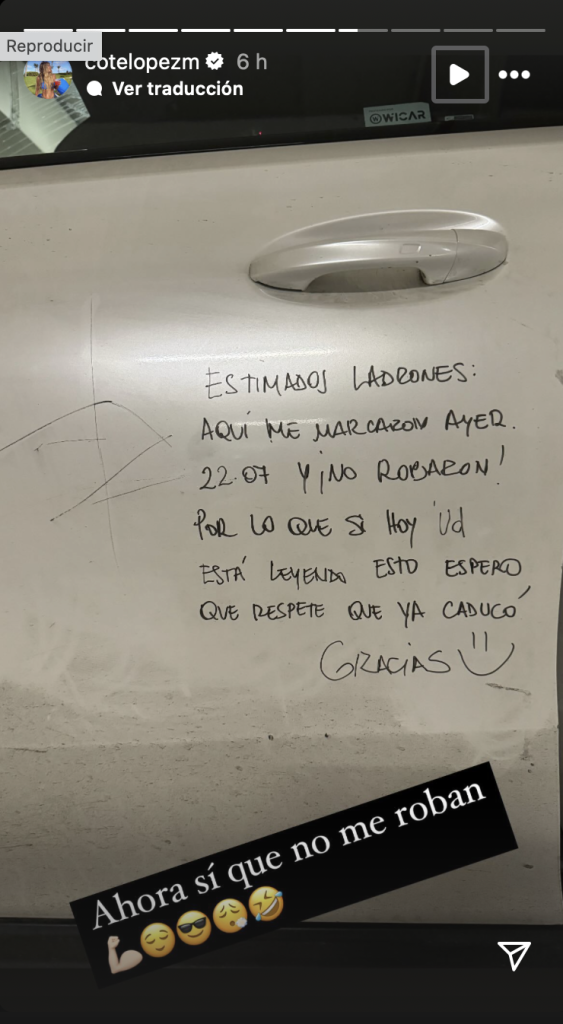 Reproducir
cotelopezm 6 h
Ver traducción
WICAR
ESTIMADOS LADRONES:
AQUÍ ME MARCARON AYER.
22.07 Y ¡NO ROBARON!
POR LO QUE SI HOY Ud
ESTÁ LEYENDO ESTO ESPERO
QUE RESPETE QUE YA CADUCÓ
GRACIAS
Ahora sí que no me roban
💪🏻😌😎😮‍💨🤣